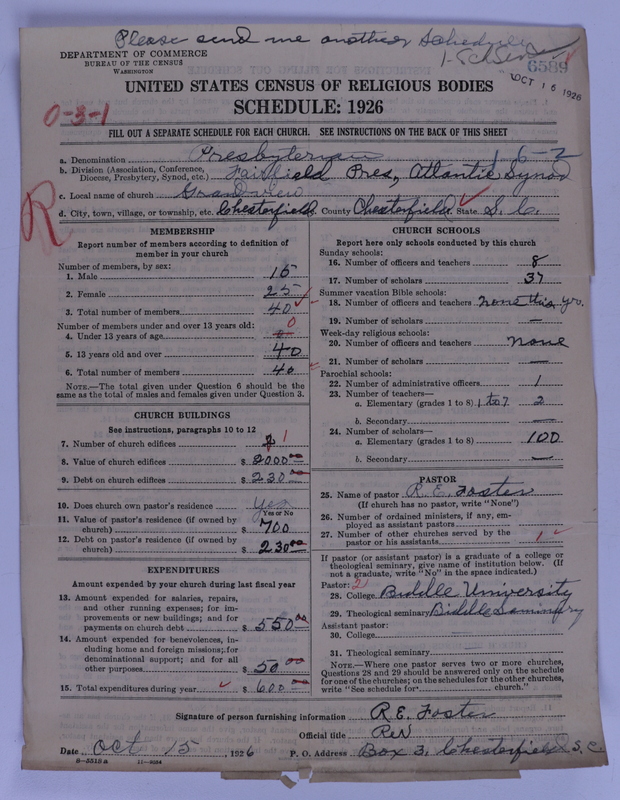 Please send me another Schedule
1-Sch Sent
DEPARTMENT OF COMMERCE
BUREAU OF THE CENSUS
WASHINGTON
6589
OCT 16 1926
UNITED STATES CENSUS OF RELIGIOUS BODIES
SCHEDULE: 1926
0-3-1
FILL OUT A SEPARATE SCHEDULE FOR EACH CHURCH. SEE INSTRUCTIONS ON THE BACK OF THIS SHEET
a. Denomination Presbyterian 16-2
b. Division (Association, Conference, Diocese, Presbytery, Synod, etc.) Fairfield Pres, Atlantic Synod
c. Local name of church Grandview
d. City, town, village, or township, etc. Chesterfield County Chesterfield State S. C.
R
MEMBERSHIP
Report number of members according to definition of
member in your church
Number of members, by sex:
1. Male 15
2. Female 25
3. Total number of members 40
Number of members under and over 13 years old:
4. Under 13 years of age 0
5. 13 years old and over 40
6. Total number of members 40
NOTE.—The total given under Question 6 should be the
same as the total of males and females given under Question 3.
CHURCH BUILDINGS
See instructions, paragraphs 10 to 12
7. Number of church edifices 1
8. Value of church edifices $ 2000.00
9. Debt on church edifices $ 230.00
10. Does church own pastor's residence Yes
Yes or No
11. Value of pastor's residence (if owned by
church) $ 700
12. Debt on pastor's residence (if owned by
church) $ 230.00
EXPENDITURES
Amount expended by your church during last fiscal year
13. Amount expended for salaries, repairs,
and other running expenses; for im-
provements or new buildings; and for
payments on church debt $ 550.00
14. Amount expended for benevolences, in-
cluding home and foreign missions; for
denominational support; and for all
other purposes $ 50.00
15. Total expenditures during year $ 600.00
CHURCH SCHOOLS
Report here only schools conducted by this church
Sunday schools:
16. Number of officers and teachers 8
17. Number of scholars 37
Summer vacation Bible schools:
18. Number of officers and teachers none this yr.
19. Number of scholars —
Week-day religious schools:
20. Number of officers and teachers none
21. Number of scholars —
Parochial schools:
22. Number of administrative officers 1
23. Number of teachers—
a. Elementary (grades 1 to 8) 1 to 7 2
b. Secondary —
24. Number of scholars—
a. Elementary (grades 1 to 8) 100
b. Secondary —
PASTOR
25. Name of pastor R. E. Foster
(If church has no pastor, write "None")
26. Number of ordained ministers, if any, em-
ployed as assistant pastors
27. Number of other churches served by the
pastor or his assistants 1
If pastor (or assistant pastor) is a graduate of a college or
theological seminary, give name of institution below. (If
not a graduate, write "No" in the space indicated.)
Pastor: 21
28. College Biddle University
29. Theological seminary Biddle Seminary
Assistant pastor:
30. College
31. Theological seminary
NOTE.—Where one pastor serves two or more churches,
Questions 28 and 29 should be answered only on the schedule
for one of the churches; on the schedules for the other churches,
write "See schedule for church."
Signature of person furnishing information R E. Foster
Official title Rev
Date Oct 15, 1926 P. O. Address Box 3, Chesterfield S. C.
8-5518 a 11-9064